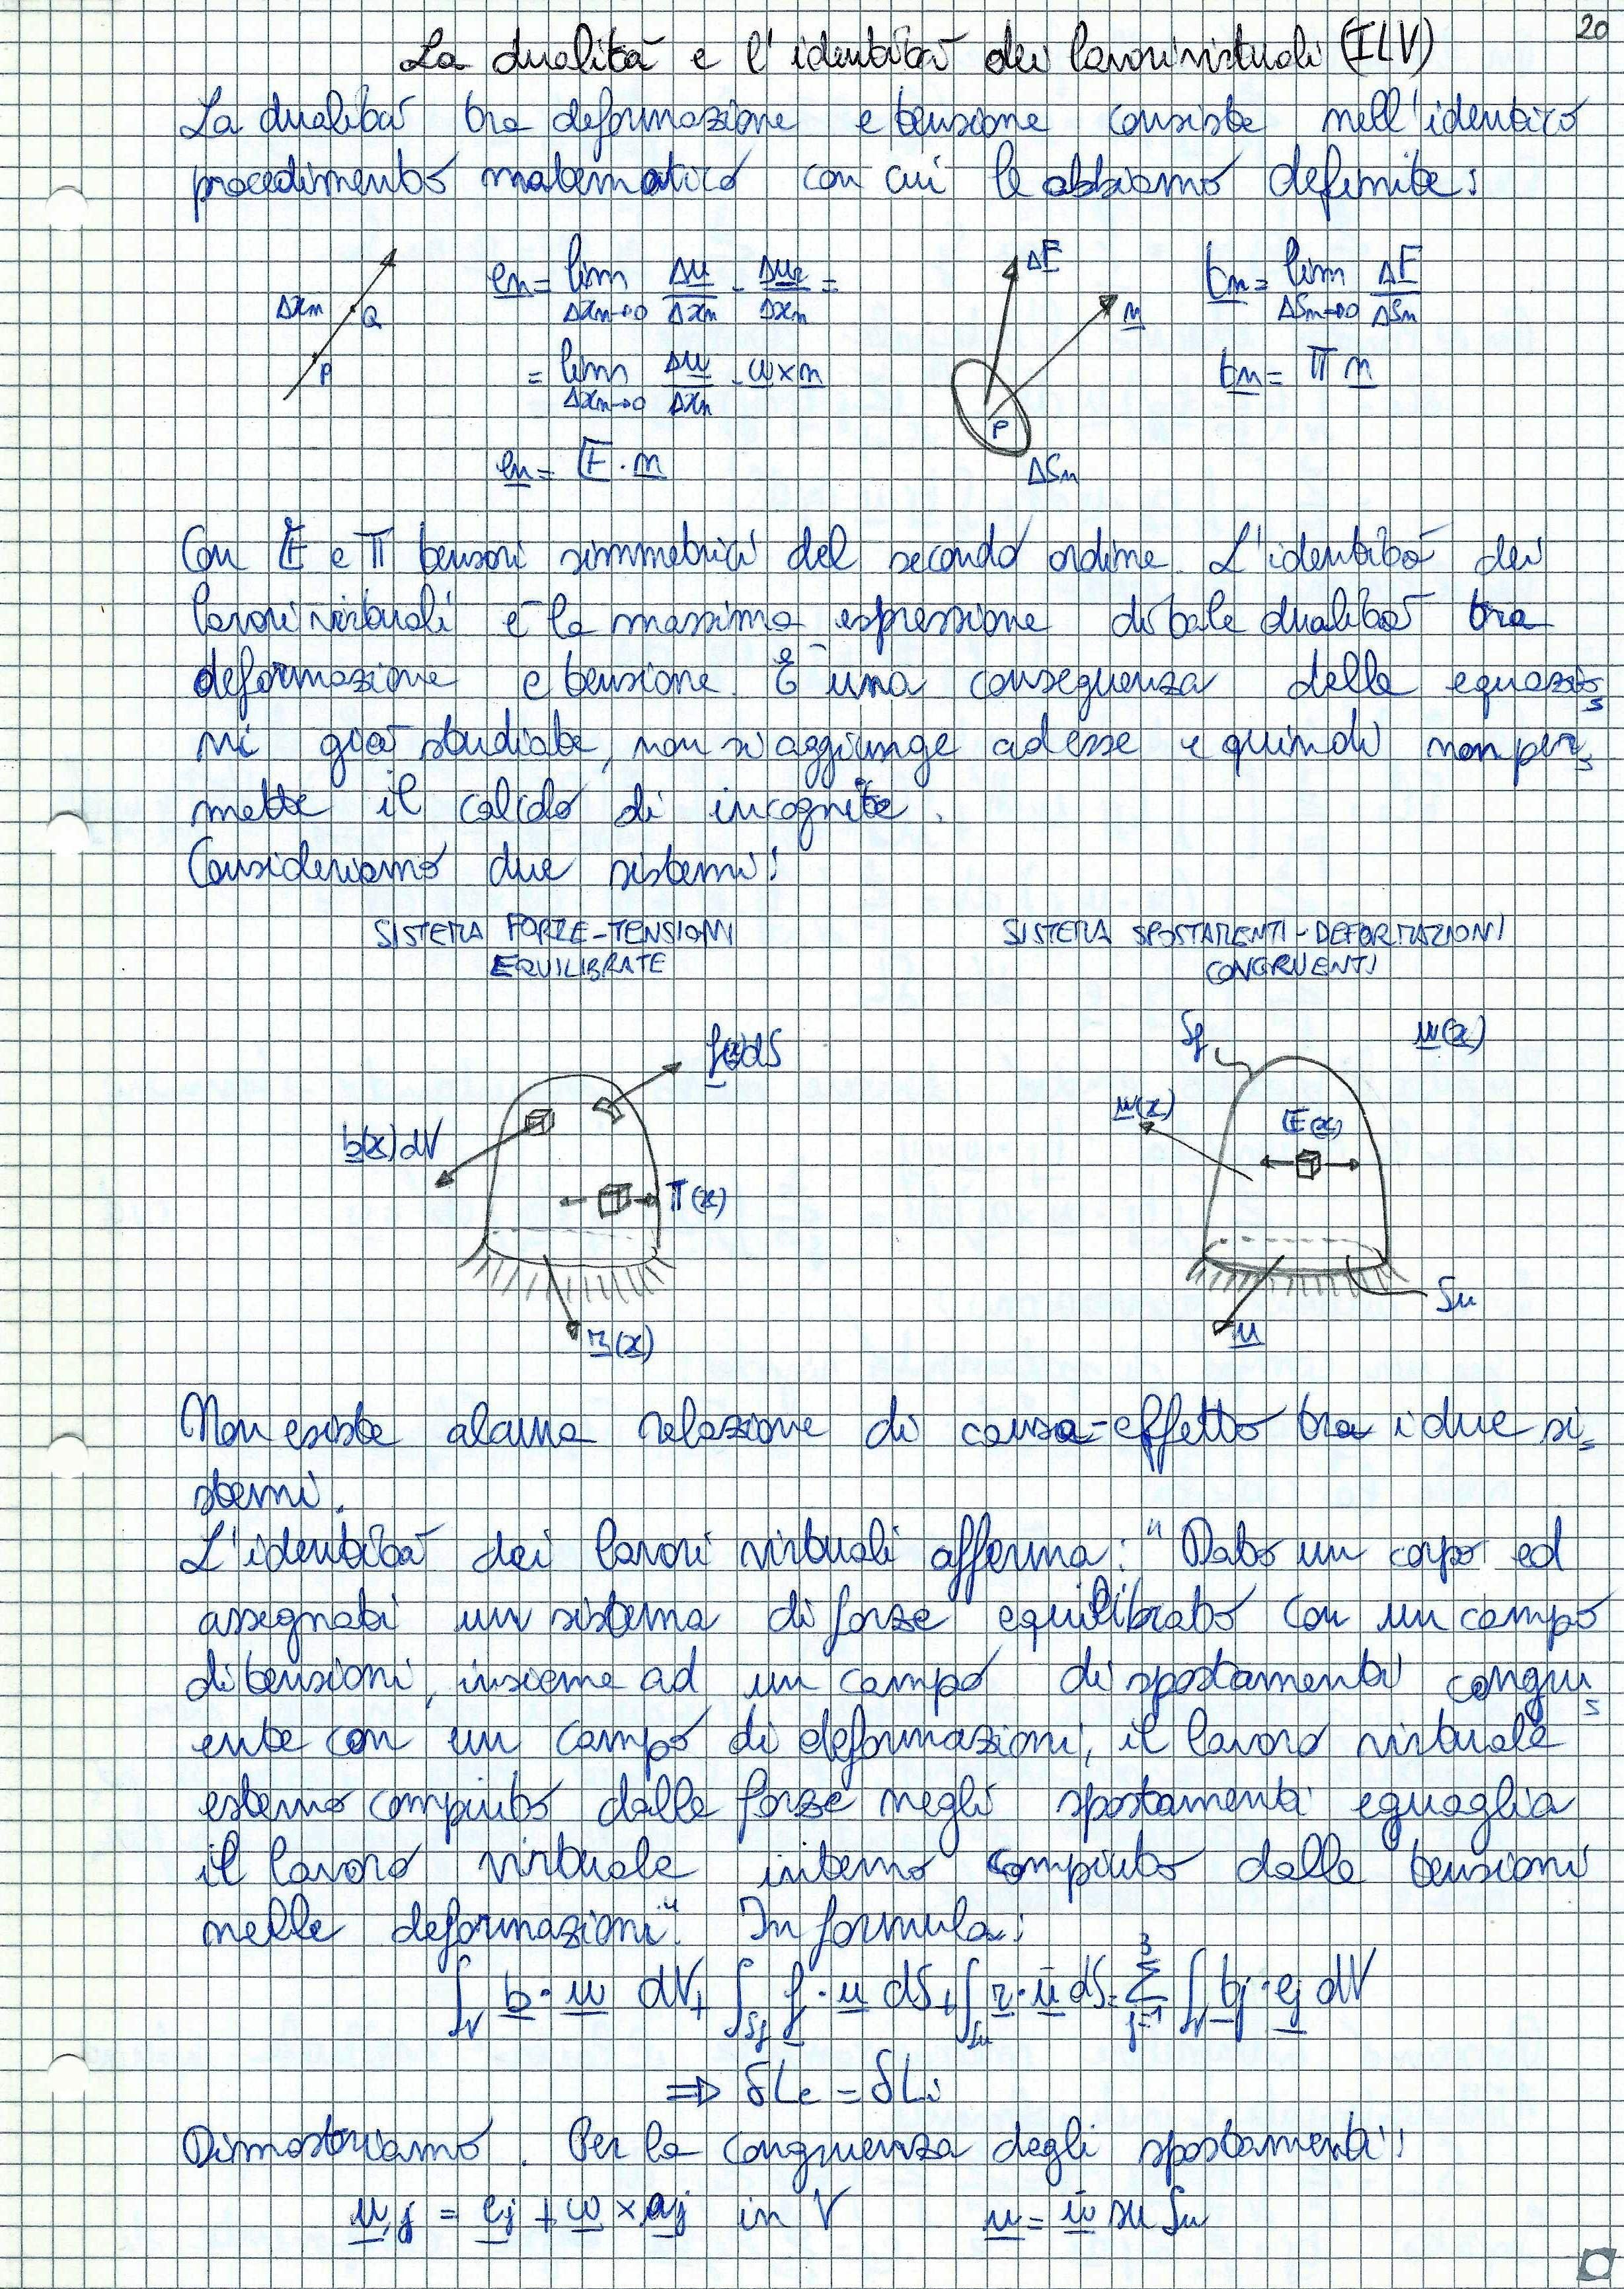 20
La dualità e l'identità dei lavori virtuali (ILV)
La dualità tra deformazione e tensione consiste nell'identico
procedimento matematico con cui le abbiamo definite:
Δxn Q P
en = lim Δxn→0 Δu/Δxn - ΔuR/Δxn =
= lim Δxn→0 Δu/Δxn - ω×n
en = E·n
ΔF n P ΔSn
tn = lim ΔSn→0 ΔF/ΔSn
tn = T n
Con E e T tensori simmetrici del secondo ordine. L'identità dei
lavori virtuali è la massima espressione di tale dualità tra
deformazione e tensione. È una conseguenza delle equazio
ni già studiate, non si aggiunge ad esse e quindi non per
mette il calcolo di incognite.
Consideriamo due sistemi:
SISTEMA FORZE-TENSIONI
EQUILIBRATE
SISTEMA SPOSTAMENTI-DEFORMAZIONI
CONGRUENTI
f(x)dS
b(x)dV
T(x)
r(x)
Sf
u(x)
u(x)
E(x)
Su
u
Non esiste alcuna relazione di causa-effetto tra i due si
stemi.
L'identità dei lavori virtuali afferma: "Dato un corpo ed
assegnati un sistema di forze equilibrato con un campo
di tensioni, insieme ad un campo di spostamenti congru
ente con un campo di deformazioni, il lavoro virtuale
esterno compiuto dalle forze negli spostamenti eguaglia
il lavoro virtuale interno compiuto dalle tensioni
nelle deformazioni". In formula:
∫V b·u dV + ∫Sf f·u dS + ∫Su r·ū dS = Σ j=1 3 ∫V tj·ej dV
⇒ δLe = δLi
Dimostriamo. Per la congruenza degli spostamenti:
u,j = ej + ω×aj in V u = ū su Su